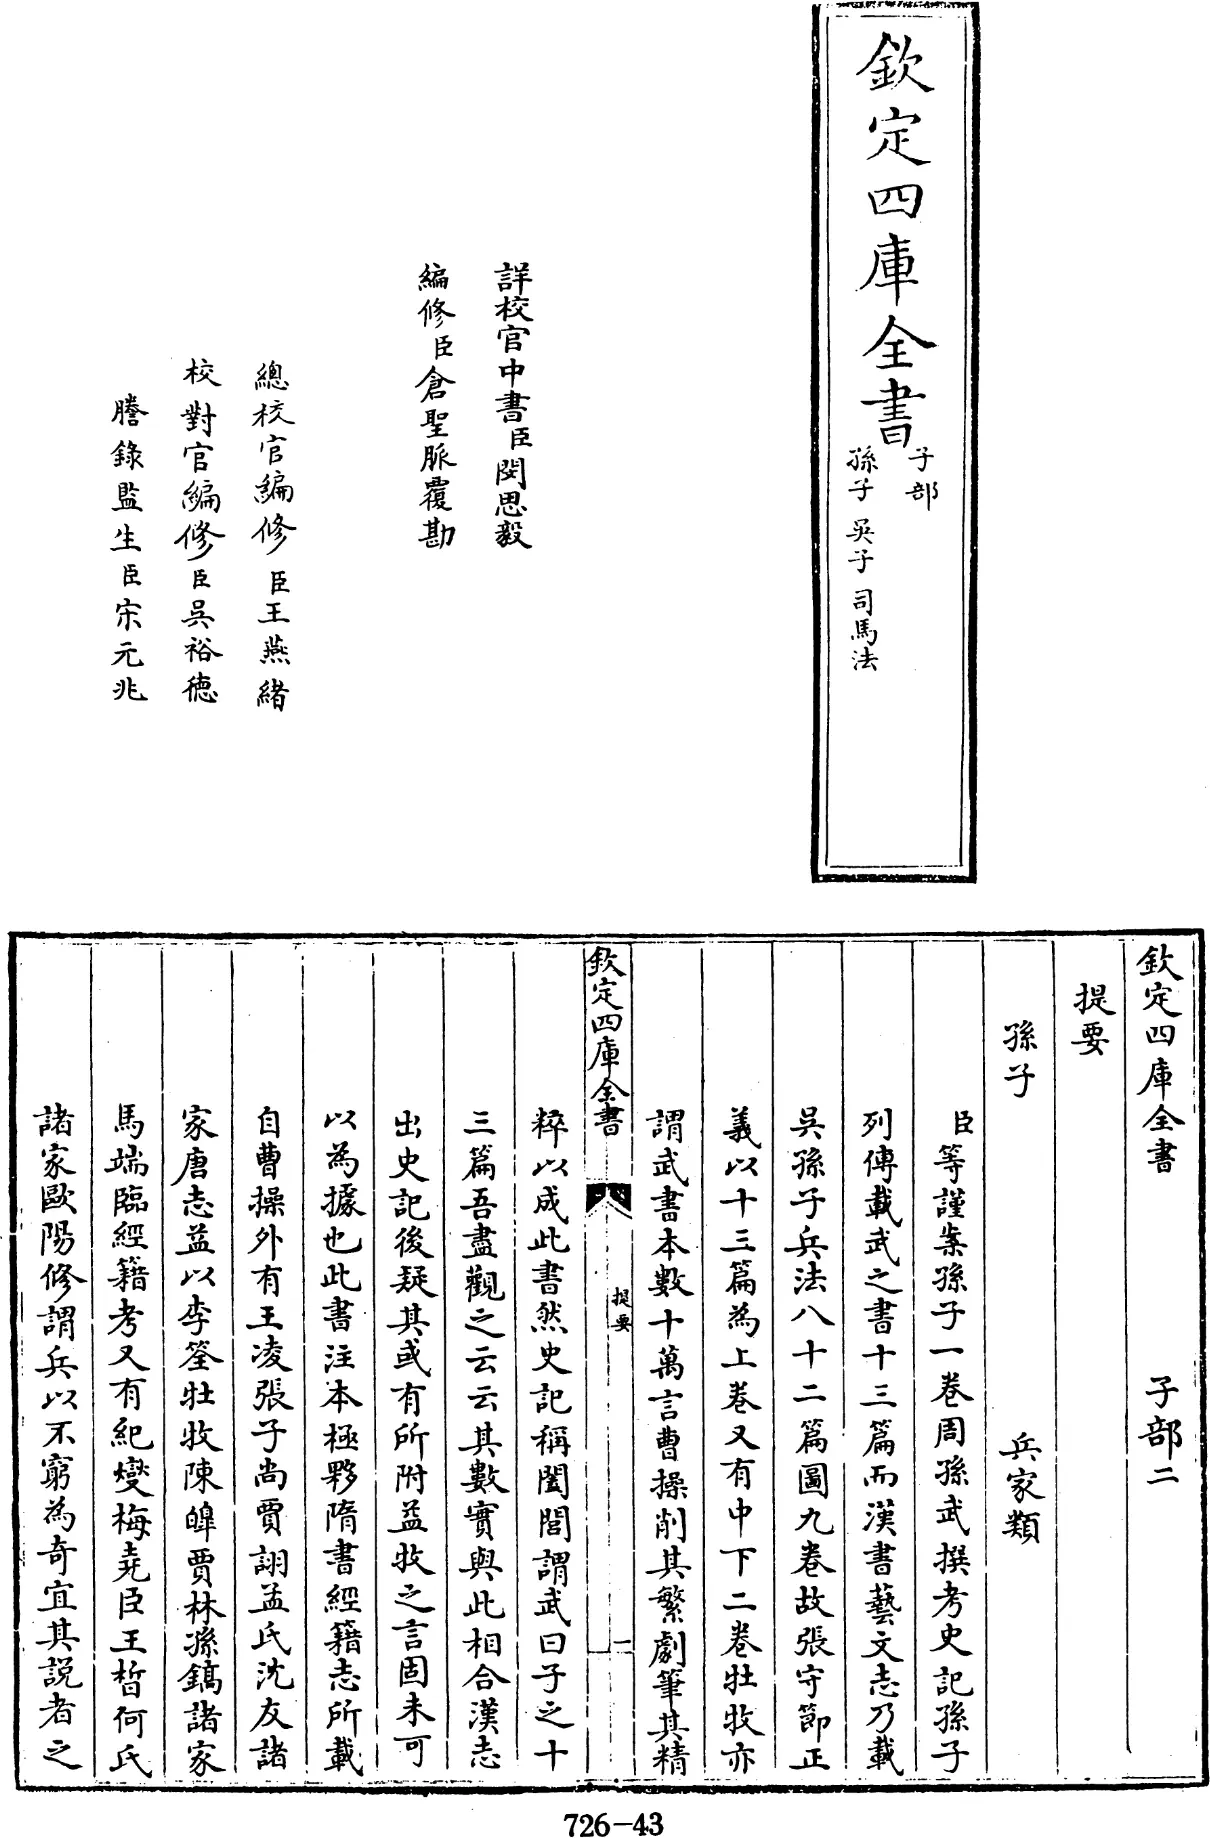 欽定四庫全書
子部
孫子 吳子 司馬法
詳校官中書臣閔思毅
編修臣倉聖脈覆勘
總校官編修臣王燕緒
校對官編修臣吳裕德
謄錄監生臣宋元兆
欽定四庫全書 子部二
提要
孫子 兵家類
臣等謹案孫子一卷周孫武撰考史記孫子
列傳載武之書十三篇而漢書藝文志乃載
吳孫子兵法八十二篇圖九卷故張守節正
義以十三篇為上卷又有中下二卷牡牧亦
謂武書本數十萬言曹操削其繁劇筆其精
欽定四庫全書
提要
一
粹以成此書然史記稱闔閭謂武曰子之十
三篇吾盡觀之云云其數實與此相合漢志
出史記後疑其或有所附益牧之言固未可
以為據也此書注本極夥隋書經籍志所載
自曹操外有王凌張子尚賈詡孟氏沈友諸
家唐志益以李筌牡牧陳皥賈林孫鎬諸家
馬端臨經籍考又有紀燮梅堯臣王晳何氏
諸家歐陽修謂兵以不窮為奇宜其説者之
726-43